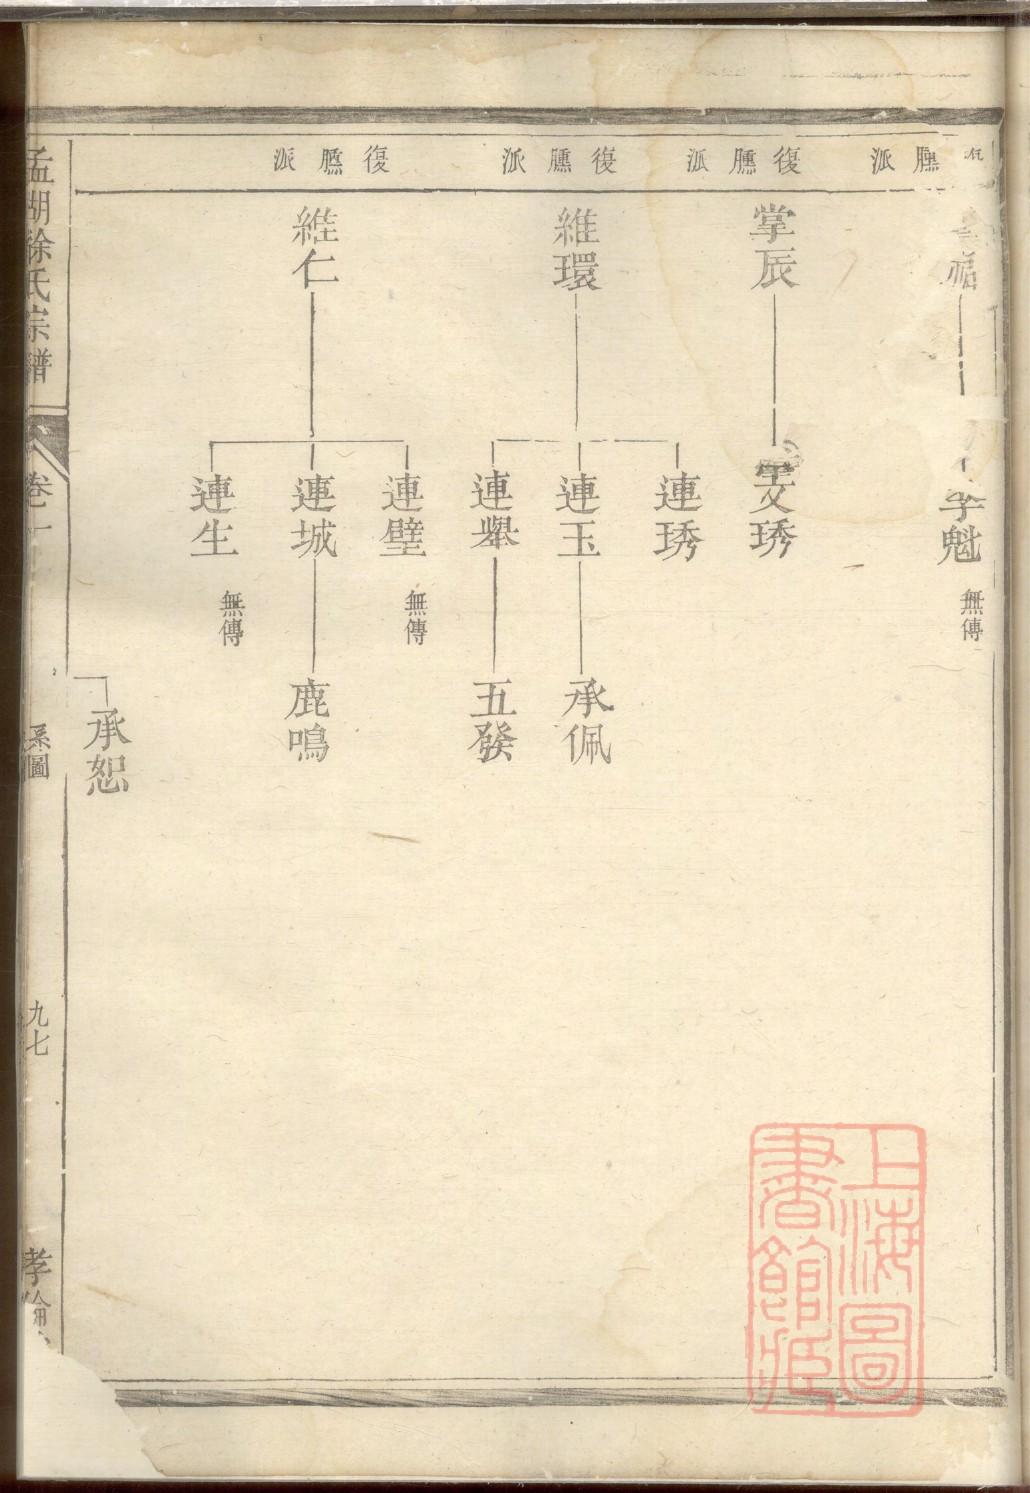 臐派
復臐派
復臐派
復臐派
福
掌辰
維環
維仁
魁
無傳
文琇
連琇
連玉
連舉
連璧
無傳
連城
連生
無傳
承佩
五發
鹿鳴
承恕
孟湖徐氏宗譜
卷一
系圖
九七
孝
上海圖
書館藏